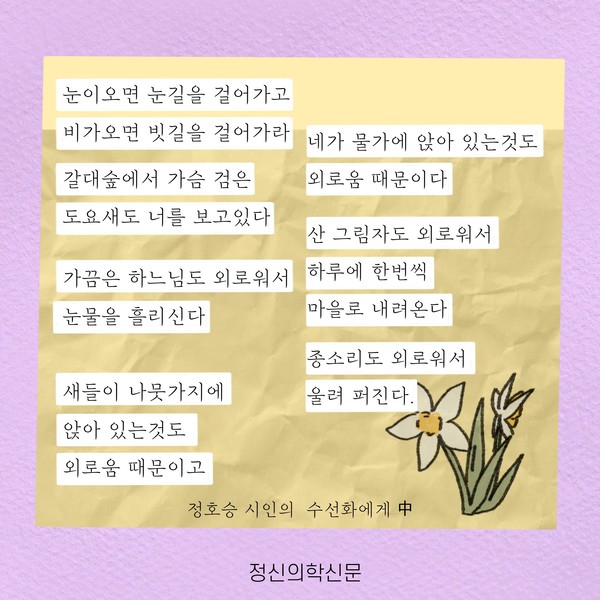 눈이오면 눈길을 걸어가고
비가오면 빗길을 걸어가라
갈대숲에서 가슴 검은
도요새도 너를 보고있다
가끔은 하느님도 외로워서
눈물을 흘리신다
새들이 나뭇가지에
앉아 있는것도
외로움 때문이고
네가 물가에 앉아 있는것도
외로움 때문이다
산 그림자도 외로워서
하루에 한번씩
마을로 내려온다
종소리도 외로워서
울려 퍼진다.
정호승 시인의 수선화에게 中
정신의학신문